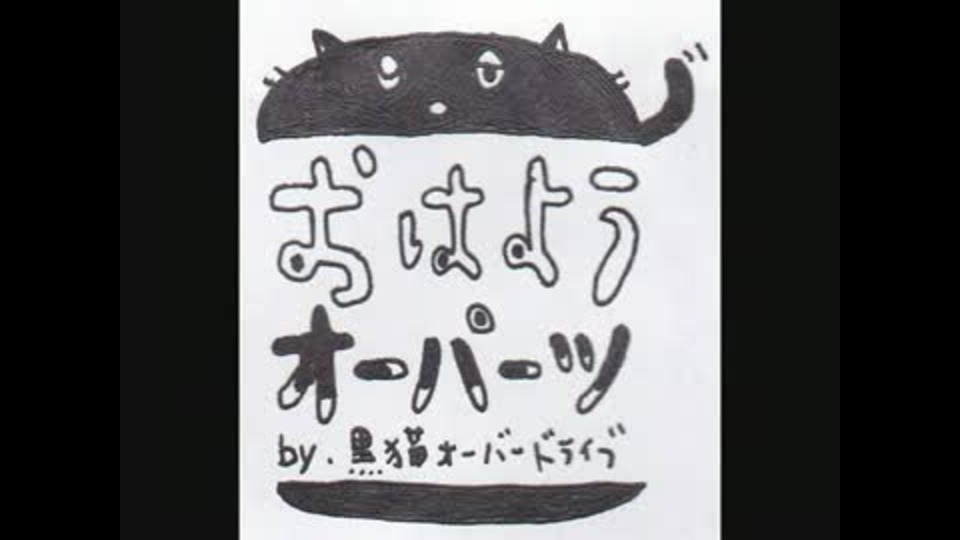 おはよう
オーパーツ
by.黒猫オーバードライブ